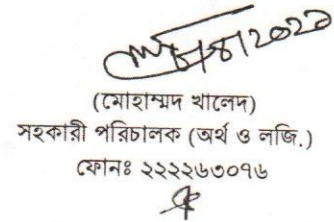 (মোহাম্মদ খালেদ)
সহকারী পরিচালক (অর্থ ও লজি.)
ফোনঃ ২২২২৬৩০৭৬